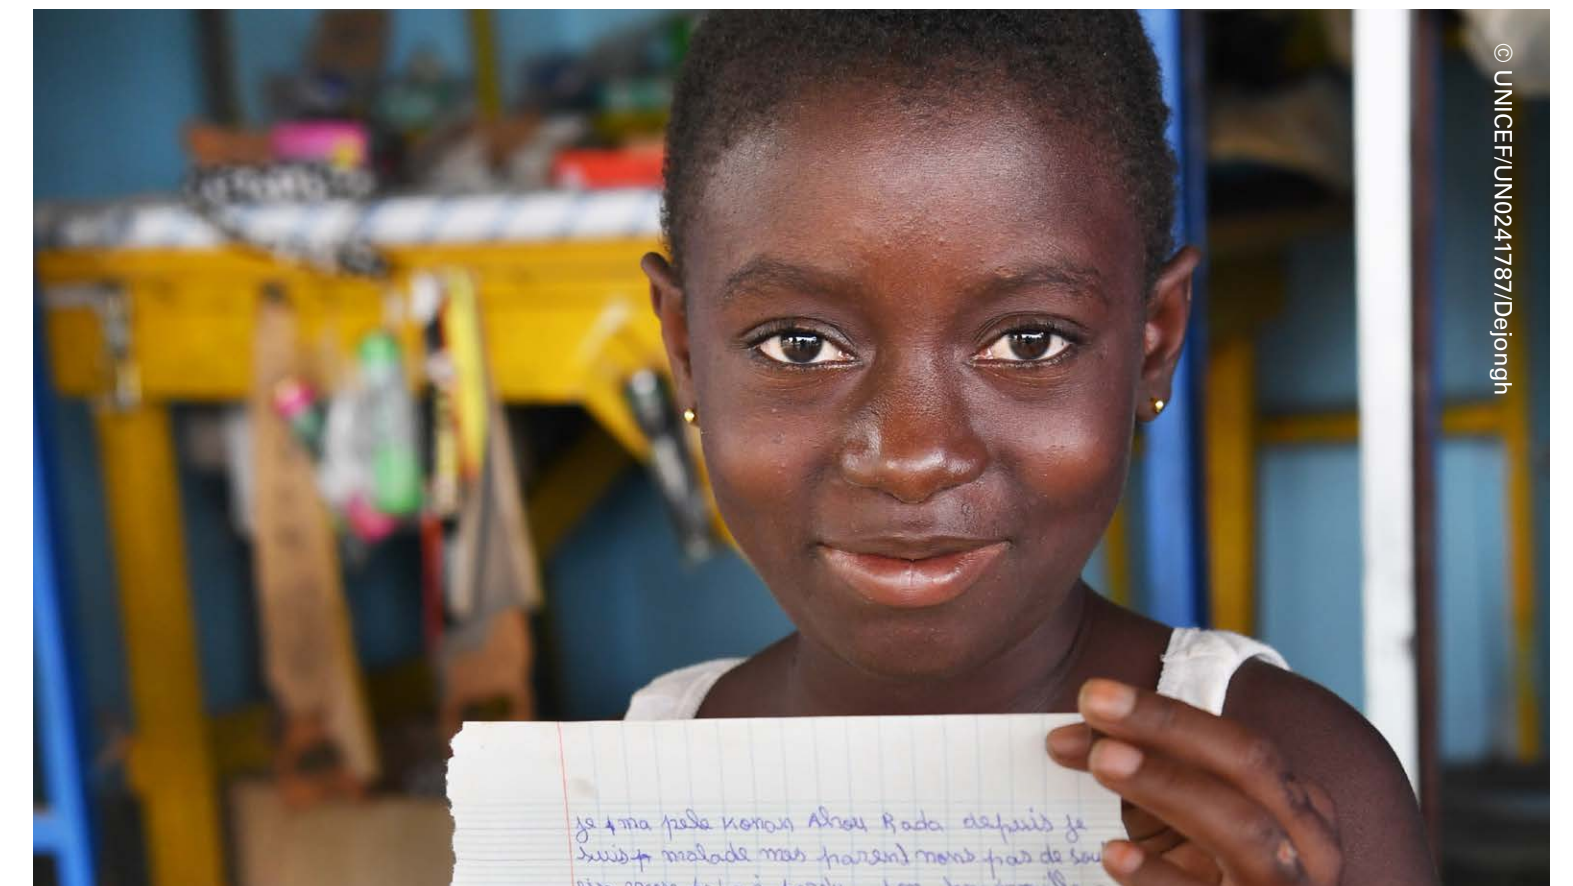 © UNICEF/UN0241787/Dejongh
je ma pele Konan Ahou Rada depuis je
suis malade mes parent nons pas de sou